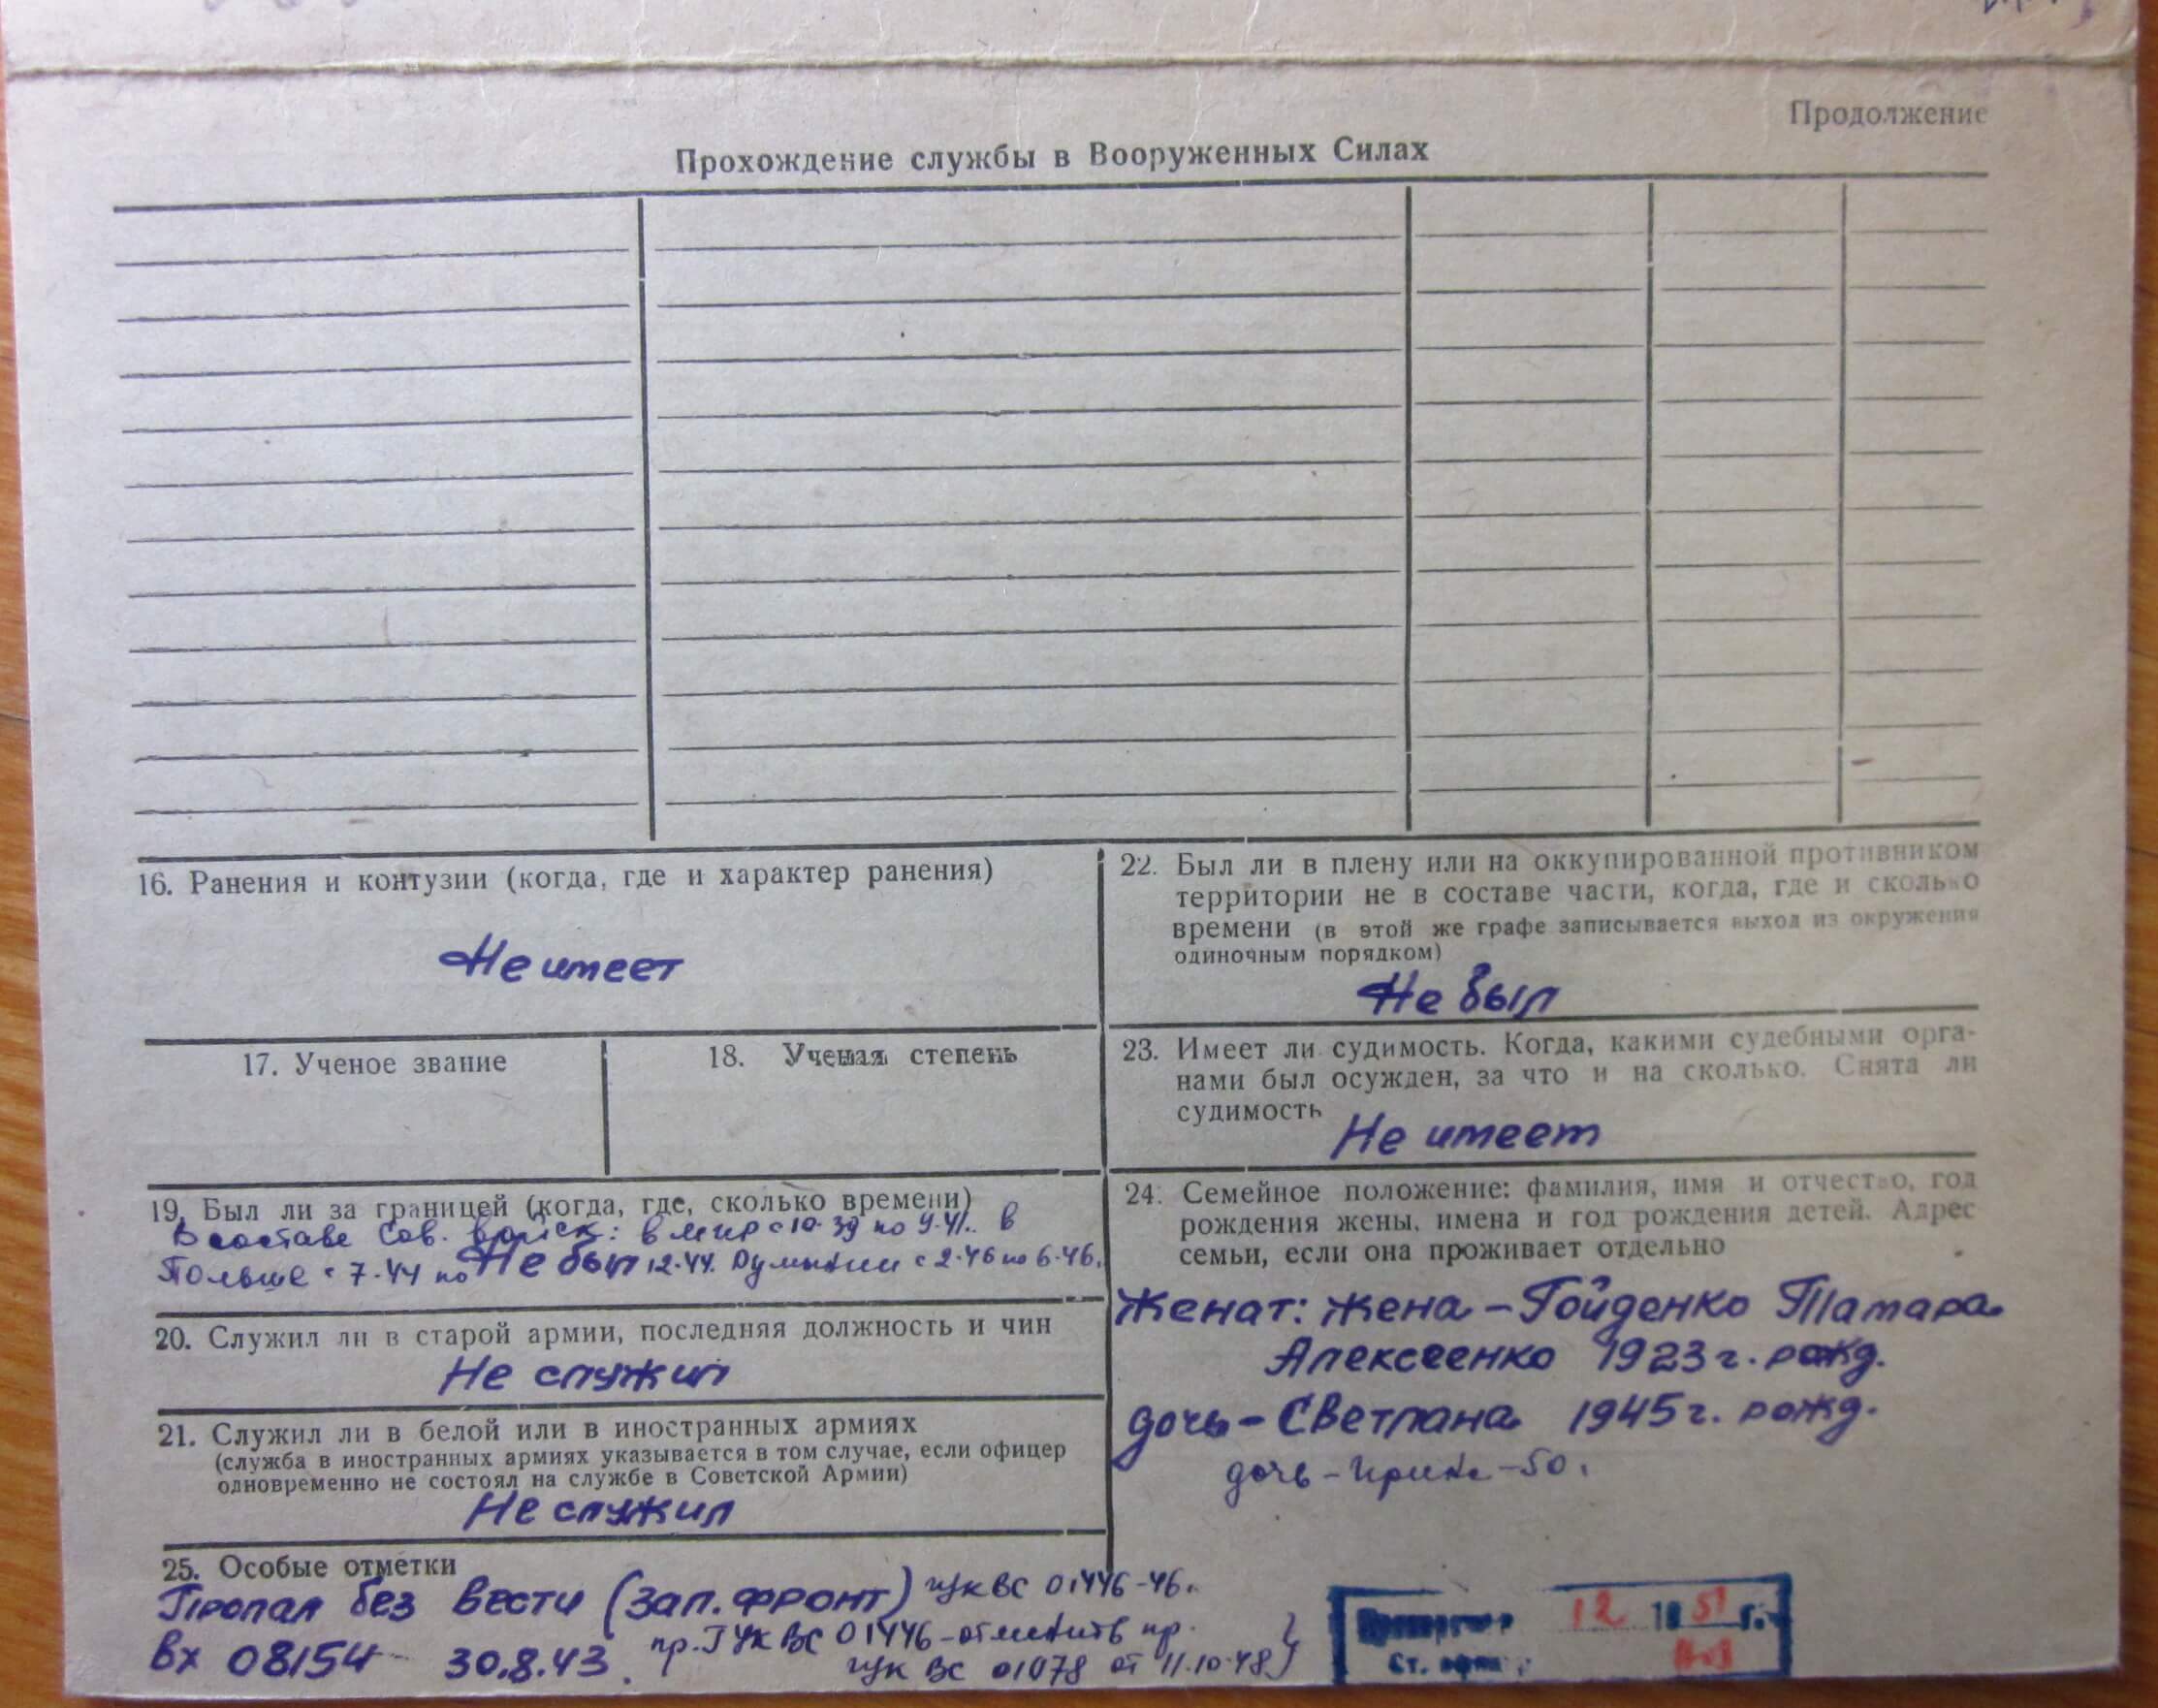 Продолжение
Прохождение службы в Вооруженных Силах
16. Ранения и контузии (когда, где и характер ранения)
Не имеет
17. Ученое звание
18. Ученая степень
19. Был ли за границей (когда, где, сколько времени)
В составе Сов. войск: в с 10.39 по 9.41. в
Польше с 7.44 по 12.44. Румынии с 2.46 по 6.46.
Не был
20. Служил ли в старой армии, последняя должность и чин
Не служил
21. Служил ли в белой или в иностранных армиях
(служба в иностранных армиях указывается в том случае, если офицер
одновременно не состоял на службе в Советской Армии)
Не служил
22. Был ли в плену или на оккупированной противником
территории не в составе части, когда, где и сколько
времени (в этой же графе записывается выход из окружения
одиночным порядком)
Не был
23. Имеет ли судимость. Когда, какими судебными орга-
нами был осужден, за что и на сколько. Снята ли
судимость
Не имеет
24. Семейное положение: фамилия, имя и отчество, год
рождения жены, имена и год рождения детей. Адрес
семьи, если она проживает отдельно
Женат: жена - Гойденко Тамара
Алексеенко 1923 г. рожд.
дочь - Светлана 1945 г. рожд.
дочь - Ирина - 50.
25. Особые отметки
Пропал без вести (Зап. фронт) гук ВС 01446-46.
Вх 08154 30.8.43. пр. ГУК ВС 01446 - отменить пр.
гук ВС 01078 от 11.10.48
12 1951 г.
Ст.